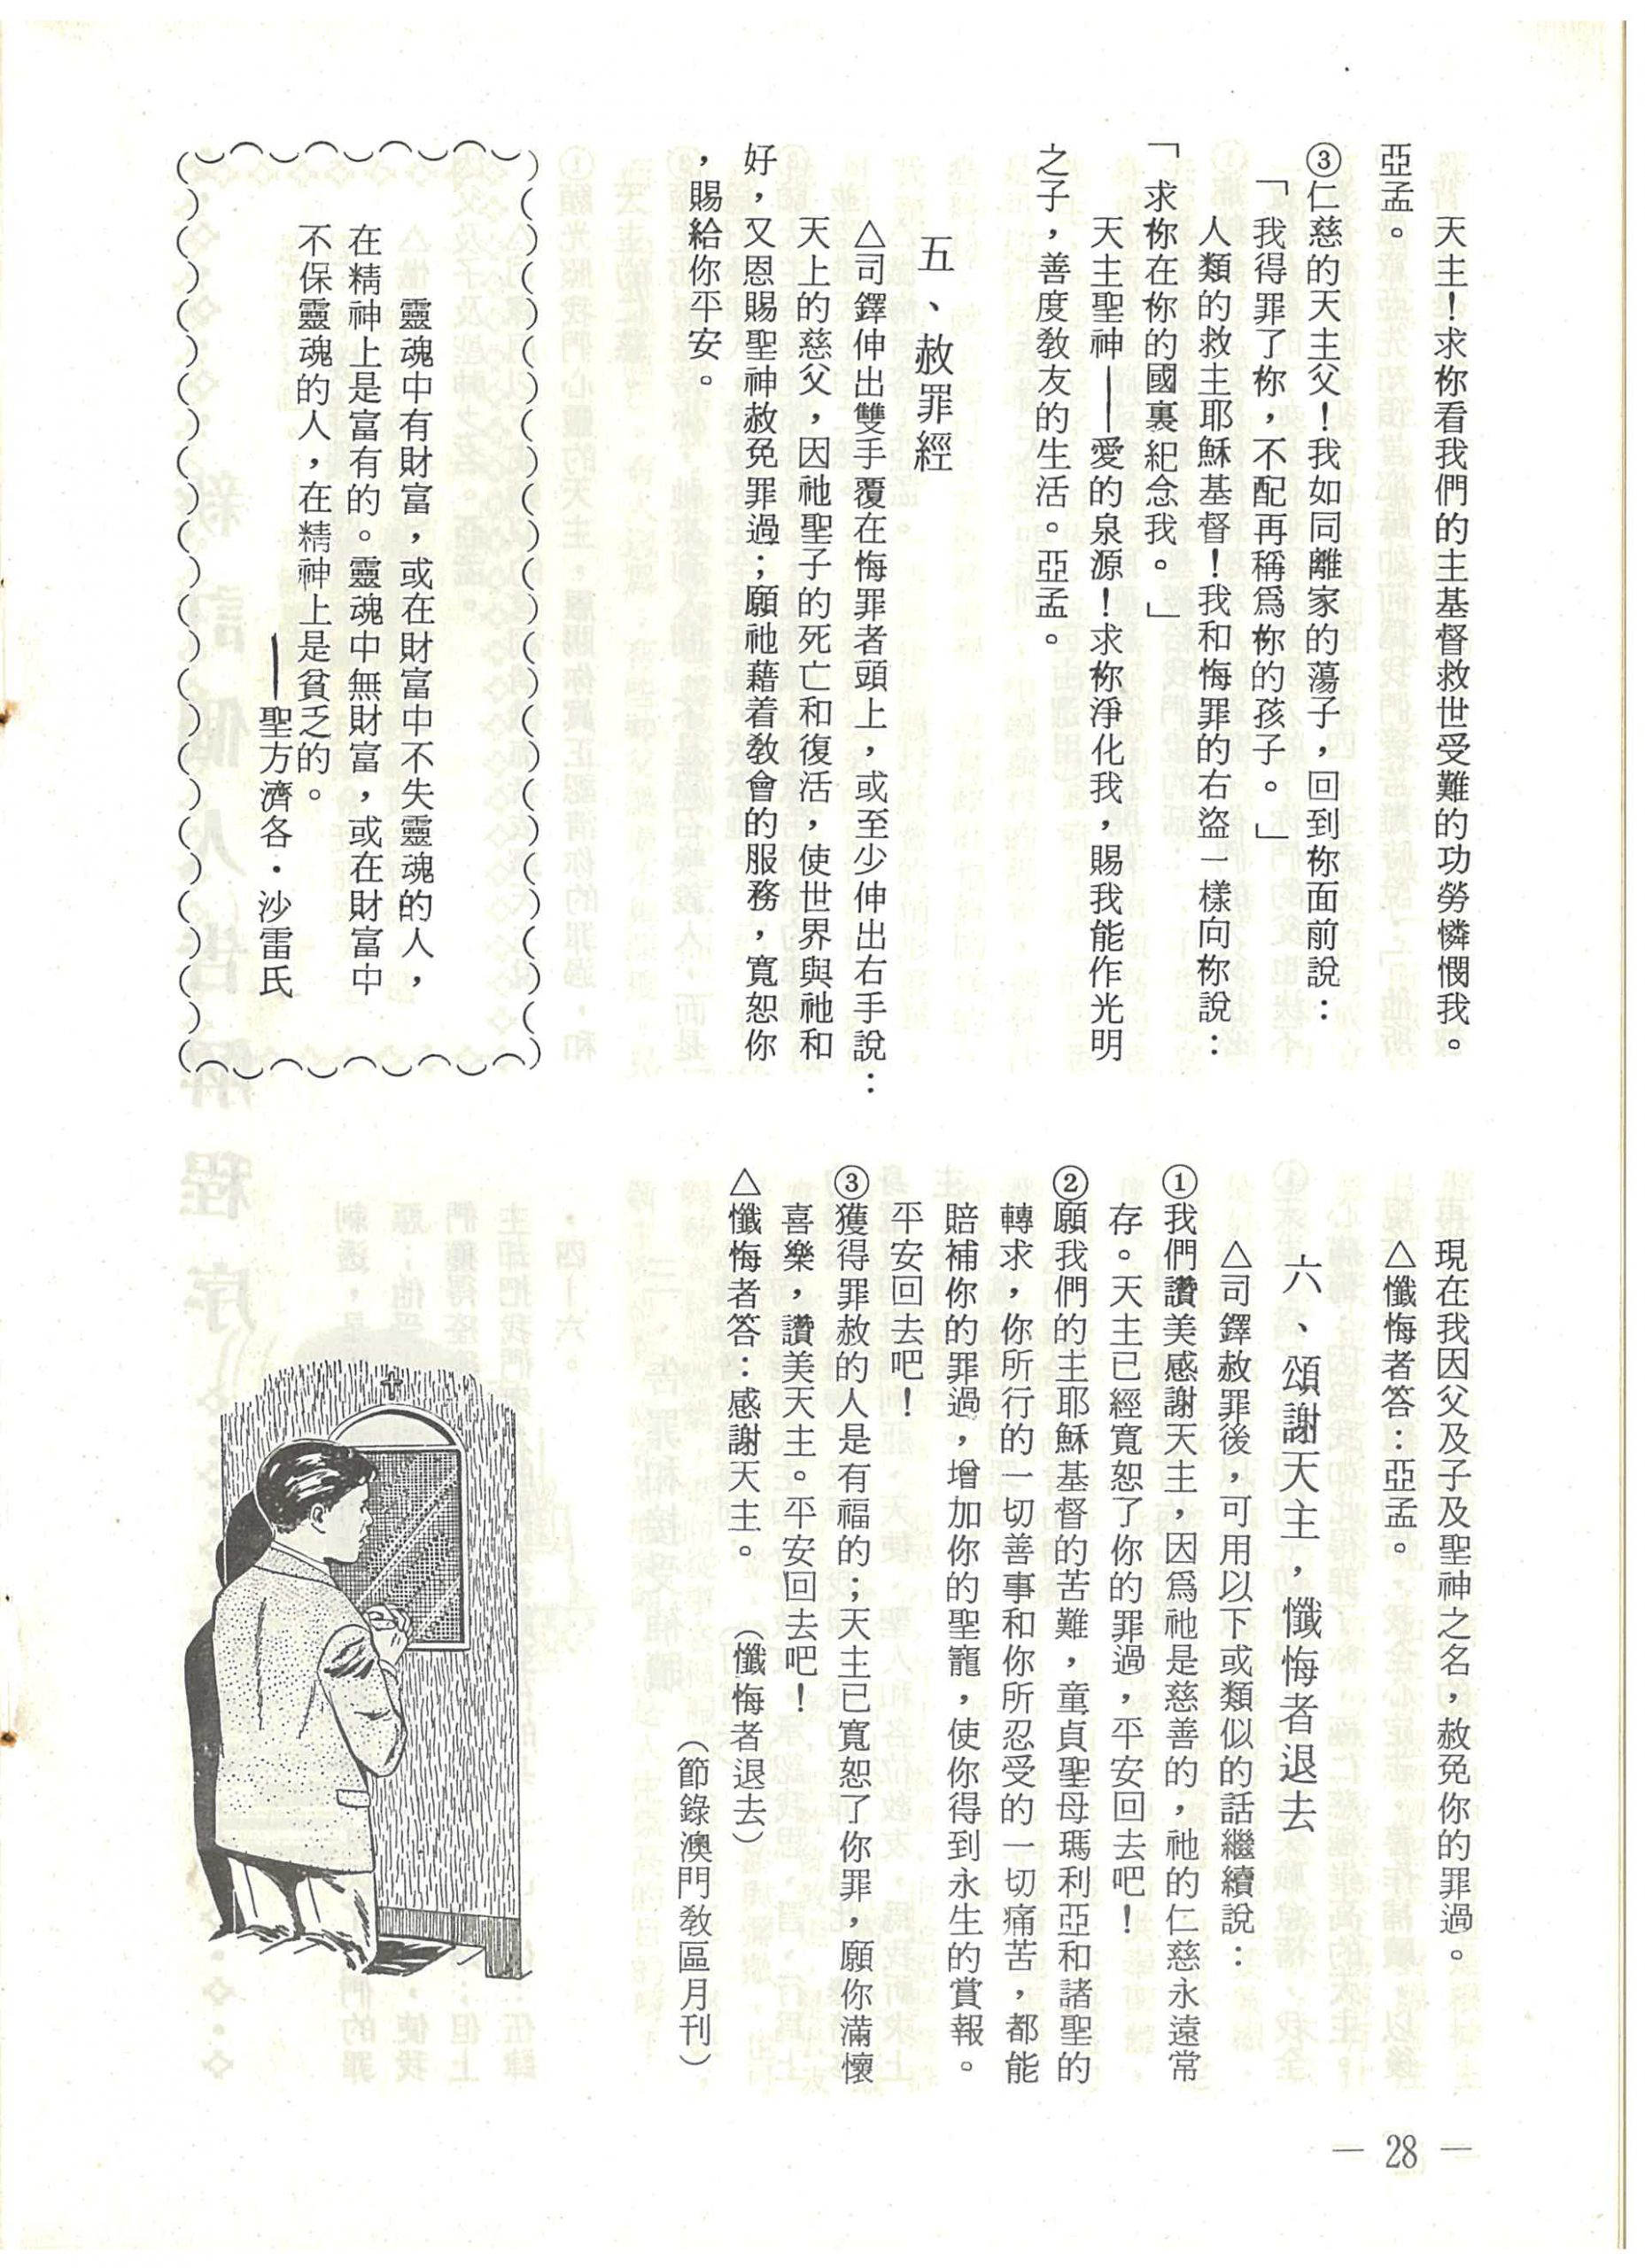 天主！求祢看我們的主基督救世受難的功勞憐憫我。
亞孟。
③仁慈的天主父！我如同離家的蕩子，回到祢面前說：
「我得罪了祢，不配再稱爲祢的孩子。」
人類的救主耶穌基督！我和悔罪的右盜一樣向祢說：
「求祢在祢的國裏紀念我。」
天主聖神──愛的泉源！求祢淨化我，賜我能作光明
之子，善度敎友的生活。亞孟。
五、赦罪經
△司鐸伸出雙手覆在悔罪者頭上，或至少伸出右手說：
天上的慈父，因祂聖子的死亡和復活，使世界與祂和
好，又恩賜聖神赦免罪過；願祂藉着敎會的服務，寬恕你
，賜給你平安。
靈魂中有財富，或在財富中不失靈魂的人，
在精神上是富有的。靈魂中無財富，或在財富中
不保靈魂的人，在精神上是貧乏的。
──聖方濟各・沙雷氏
現在我因父及子及聖神之名，赦免你的罪過。
△懺悔者答：亞孟。
六、頌謝天主，懺悔者退去
△司鐸赦罪後，可用以下或類似的話繼續說：
①我們讚美感謝天主，因爲祂是慈善的，祂的仁慈永遠常
存。天主已經寬恕了你的罪過，平安回去吧！
②願我們的主耶穌基督的苦難，童貞聖母瑪利亞和諸聖的
轉求，你所行的一切善事和你所忍受的一切痛苦，都能
賠補你的罪過，增加你的聖寵，使你得到永生的賞報。
平安回去吧！
③獲得罪赦的人是有福的；天主已寬恕了你罪，願你滿懷
喜樂，讚美天主。平安回去吧！
△懺悔者答：感謝天主。　（懺悔者退去）
（節錄澳門敎區月刊）
— 28 —